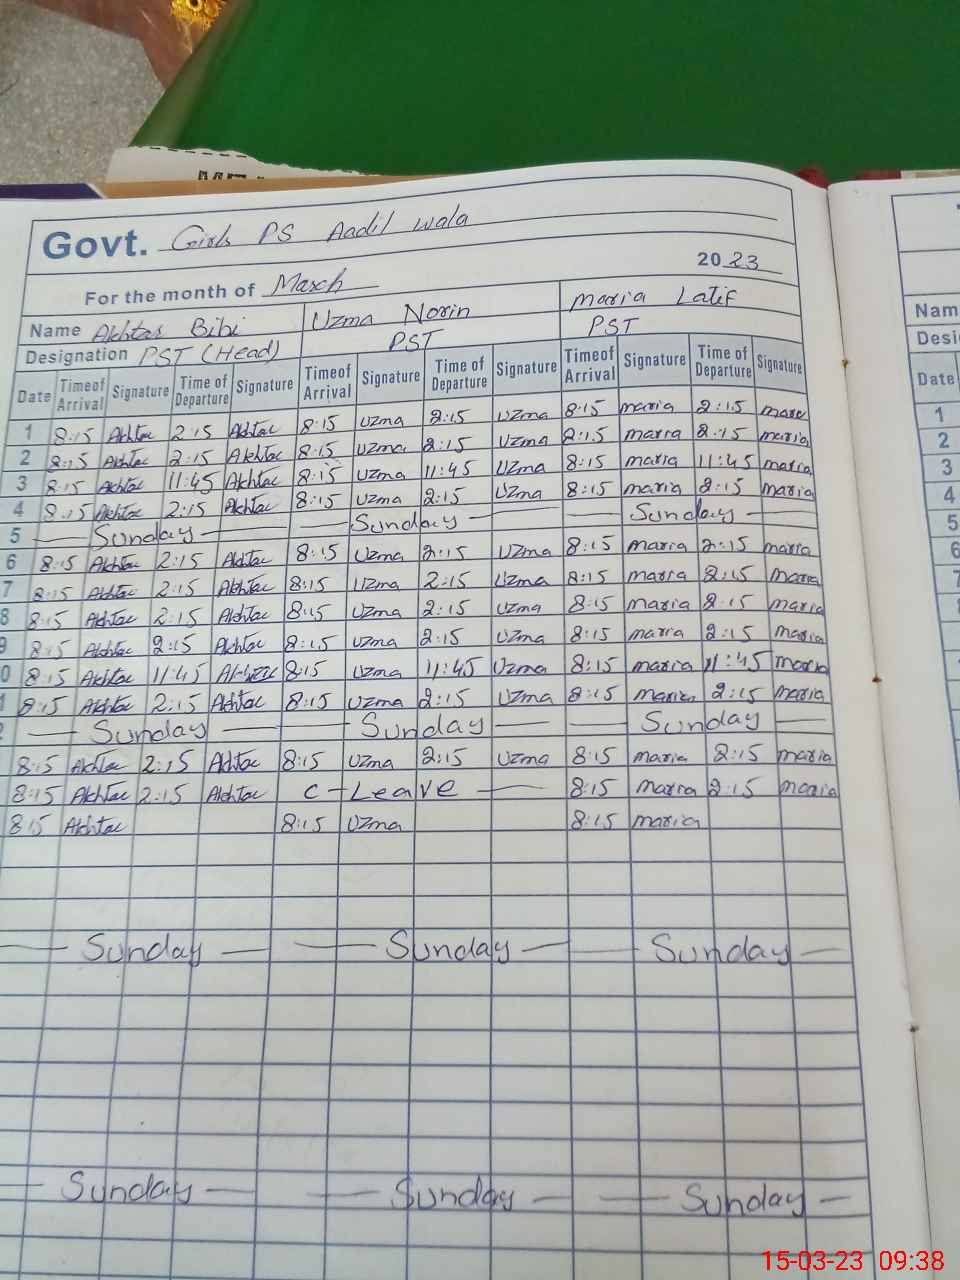 Govt. Girls PS Aadil wala
For the month of March 2023
Name Akhtar Bibi Uzma Norin Maria Latif
Designation PST (Head) PST PST
Date Time of Arrival Signature Time of Departure Signature Time of Arrival Signature Time of Departure Signature Time of Arrival Signature Time of Departure Signature
1 8:15 Akhtar 2:15 Akhtar 8:15 Uzma 2:15 Uzma 8:15 maria 2:15 maria
2 8:15 Akhtar 2:15 Akhtar 8:15 Uzma 2:15 Uzma 2:15 maria 2:15 maria
3 8:15 Akhtar 11:45 Akhtar 8:15 Uzma 11:45 Uzma 8:15 maria 11:45 maria
4 8:15 Akhtar 2:15 Akhtar 8:15 Uzma 2:15 Uzma 8:15 maria 2:15 maria
5 Sunday Sunday Sunday
6 8:15 Akhtar 2:15 Akhtar 8:15 Uzma 2:15 Uzma 8:15 maria 2:15 maria
7 8:15 Akhtar 2:15 Akhtar 8:15 Uzma 2:15 Uzma 8:15 maria 2:15 maria
8 8:15 Akhtar 2:15 Akhtar 8:15 Uzma 2:15 Uzma 8:15 maria 2:15 maria
9 8:15 Akhtar 2:15 Akhtar 8:15 Uzma 2:15 Uzma 8:15 maria 2:15 maria
0 8:15 Akhtar 11:45 Akhtar 8:15 Uzma 11:45 Uzma 8:15 maria 11:45 maria
1 8:15 Akhtar 2:15 Akhtar 8:15 Uzma 2:15 Uzma 8:15 maria 2:15 maria
2 Sunday Sunday Sunday
8:15 Akhtar 2:15 Akhtar 8:15 Uzma 2:15 Uzma 8:15 maria 2:15 maria
8:15 Akhtar 2:15 Akhtar C-Leave 8:15 maria 2:15 maria
8:15 Akhtar 8:15 Uzma 8:15 maria
Sunday Sunday Sunday
Sunday Sunday Sunday
Nam
Desi
Date
1
2
3
4
5
6
7
15-03-23 09:38